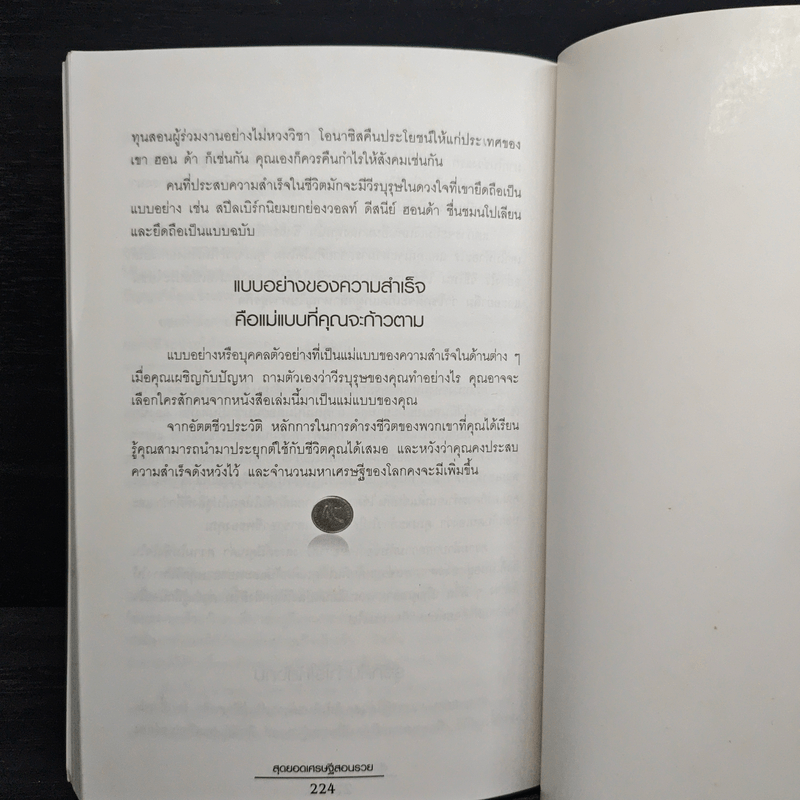 ทุนสอนผู้ร่วมงานอย่างไม่หวงวิชา โอนาซิสคืนประโยชน์ให้แก่ประเทศของ
เขา ฮอน ด้า ก็เช่นกัน คุณเองก็ควรคืนกำไรให้สังคมเช่นกัน
คนที่ประสบความสำเร็จในชีวิตมักจะมีวีรบุรุษในดวงใจที่เขายึดถือเป็น
แบบอย่าง เช่น สปีลเบิร์กนิยมยกย่องวอลท์ ดีสนีย์ ฮอนด้า ชื่นชมนโปเลียน
และยึดถือเป็นแบบฉบับ
แบบอย่างของความสำเร็จ
คือแม่แบบที่คุณจะก้าวตาม
แบบอย่างหรือบุคคลตัวอย่างที่เป็นแม่แบบของความสำเร็จในด้านต่าง ๆ
เมื่อคุณเผชิญกับปัญหา ถามตัวเองว่าวีรบุรุษของคุณทำอย่างไร คุณอาจจะ
เลือกใครสักคนจากหนังสือเล่มนี้มาเป็นแม่แบบของคุณ
จากอัตตชีวประวัติ หลักการในการดำรงชีวิตของพวกเขาที่คุณได้เรียน
รู้คุณสามารถนำมาประยุกต์ใช้กับชีวิตคุณได้เสมอ และหวังว่าคุณคงประสบ
ความสำเร็จดังหวังไว้ และจำนวนมหาเศรษฐีของโลกคงจะมีเพิ่มขึ้น
สุดยอดเศรษฐีสอนรวย
224